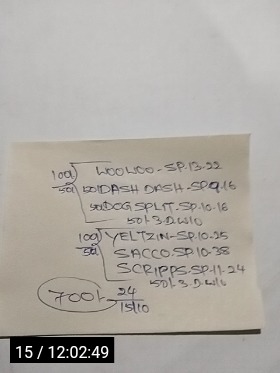 100) WOOWOO-SP.13-22
50) 50) DASH DASH-SP.9.16
50) DOGSPLIT-SP.10-16
50/-3.D.W10
100) YELTZIN-SP.10-25
50) SACCO.SP.10-38
SCRIPPS-SP.11-24
50/-3.D.W10
700/- 24
15/10
15 / 12:02:49